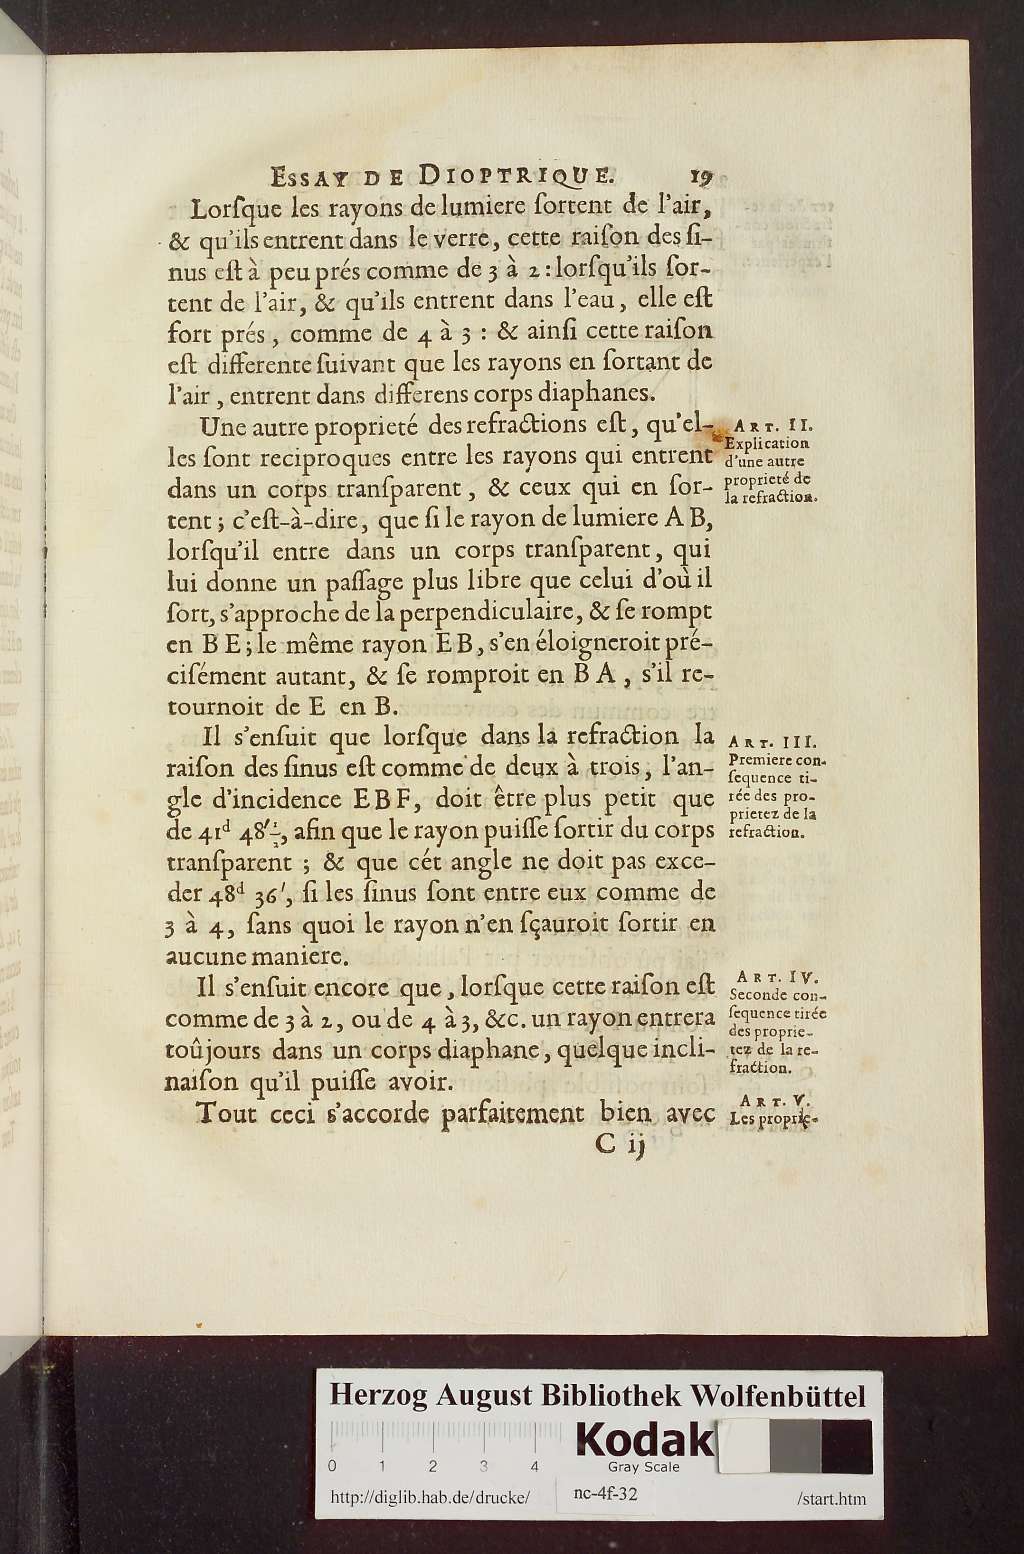 ESSAY DE DIOPTRIQUE. 19
Lorſque les rayons de lumiere ſortent de l'air,
& qu'ils entrent dans le verre, cette raiſon des ſi-
nus eſt à peu prés comme de 3 à 2 : lorſqu'ils ſor-
tent de l'air, & qu'ils entrent dans l'eau, elle eſt
fort prés, comme de 4 à 3 : & ainſi cette raiſon
eſt differente ſuivant que les rayons en ſortant de
l'air, entrent dans differens corps diaphanes.
Une autre proprieté des refractions eſt, qu'el-
les ſont reciproques entre les rayons qui entrent
dans un corps tranſparent, & ceux qui en ſor-
tent ; c'eſt-à-dire, que ſi le rayon de lumiere A B,
lorſqu'il entre dans un corps tranſparent, qui
lui donne un paſſage plus libre que celui d'où il
ſort, s'approche de la perpendiculaire, & ſe rompt
en B E ; le même rayon E B, s'en éloigneroit pré-
ciſément autant, & ſe romproit en B A, s'il re-
tournoit de E en B.
ART. II.
Explication
d'une autre
proprieté de
la refraction.
Il s'enſuit que lorſque dans la refraction la
raiſon des ſinus eſt comme de deux à trois, l'an-
gle d'incidence E B F, doit être plus petit que
de 41d 48'½, afin que le rayon puiſſe ſortir du corps
tranſparent ; & que cét angle ne doit pas exce-
der 48d 36', ſi les ſinus ſont entre eux comme de
3 à 4, ſans quoi le rayon n'en ſçauroit ſortir en
aucune maniere.
ART. III.
Premiere con-
ſequence ti-
rée des pro-
prietez de la
refraction.
Il s'enſuit encore que, lorſque cette raiſon eſt
comme de 3 à 2, ou de 4 à 3, &c. un rayon entrera
toûjours dans un corps diaphane, quelque incli-
naiſon qu'il puiſſe avoir.
ART. IV.
Seconde con-
ſequence tirée
des proprie-
tez de la re-
fraction.
Tout ceci s'accorde parfaitement bien avec
ART. V.
Les proprie-
C ij
Herzog August Bibliothek Wolfenbüttel
Kodak
Gray Scale
0 1 2 3 4
http://diglib.hab.de/drucke/ nc-4f-32 /start.htm